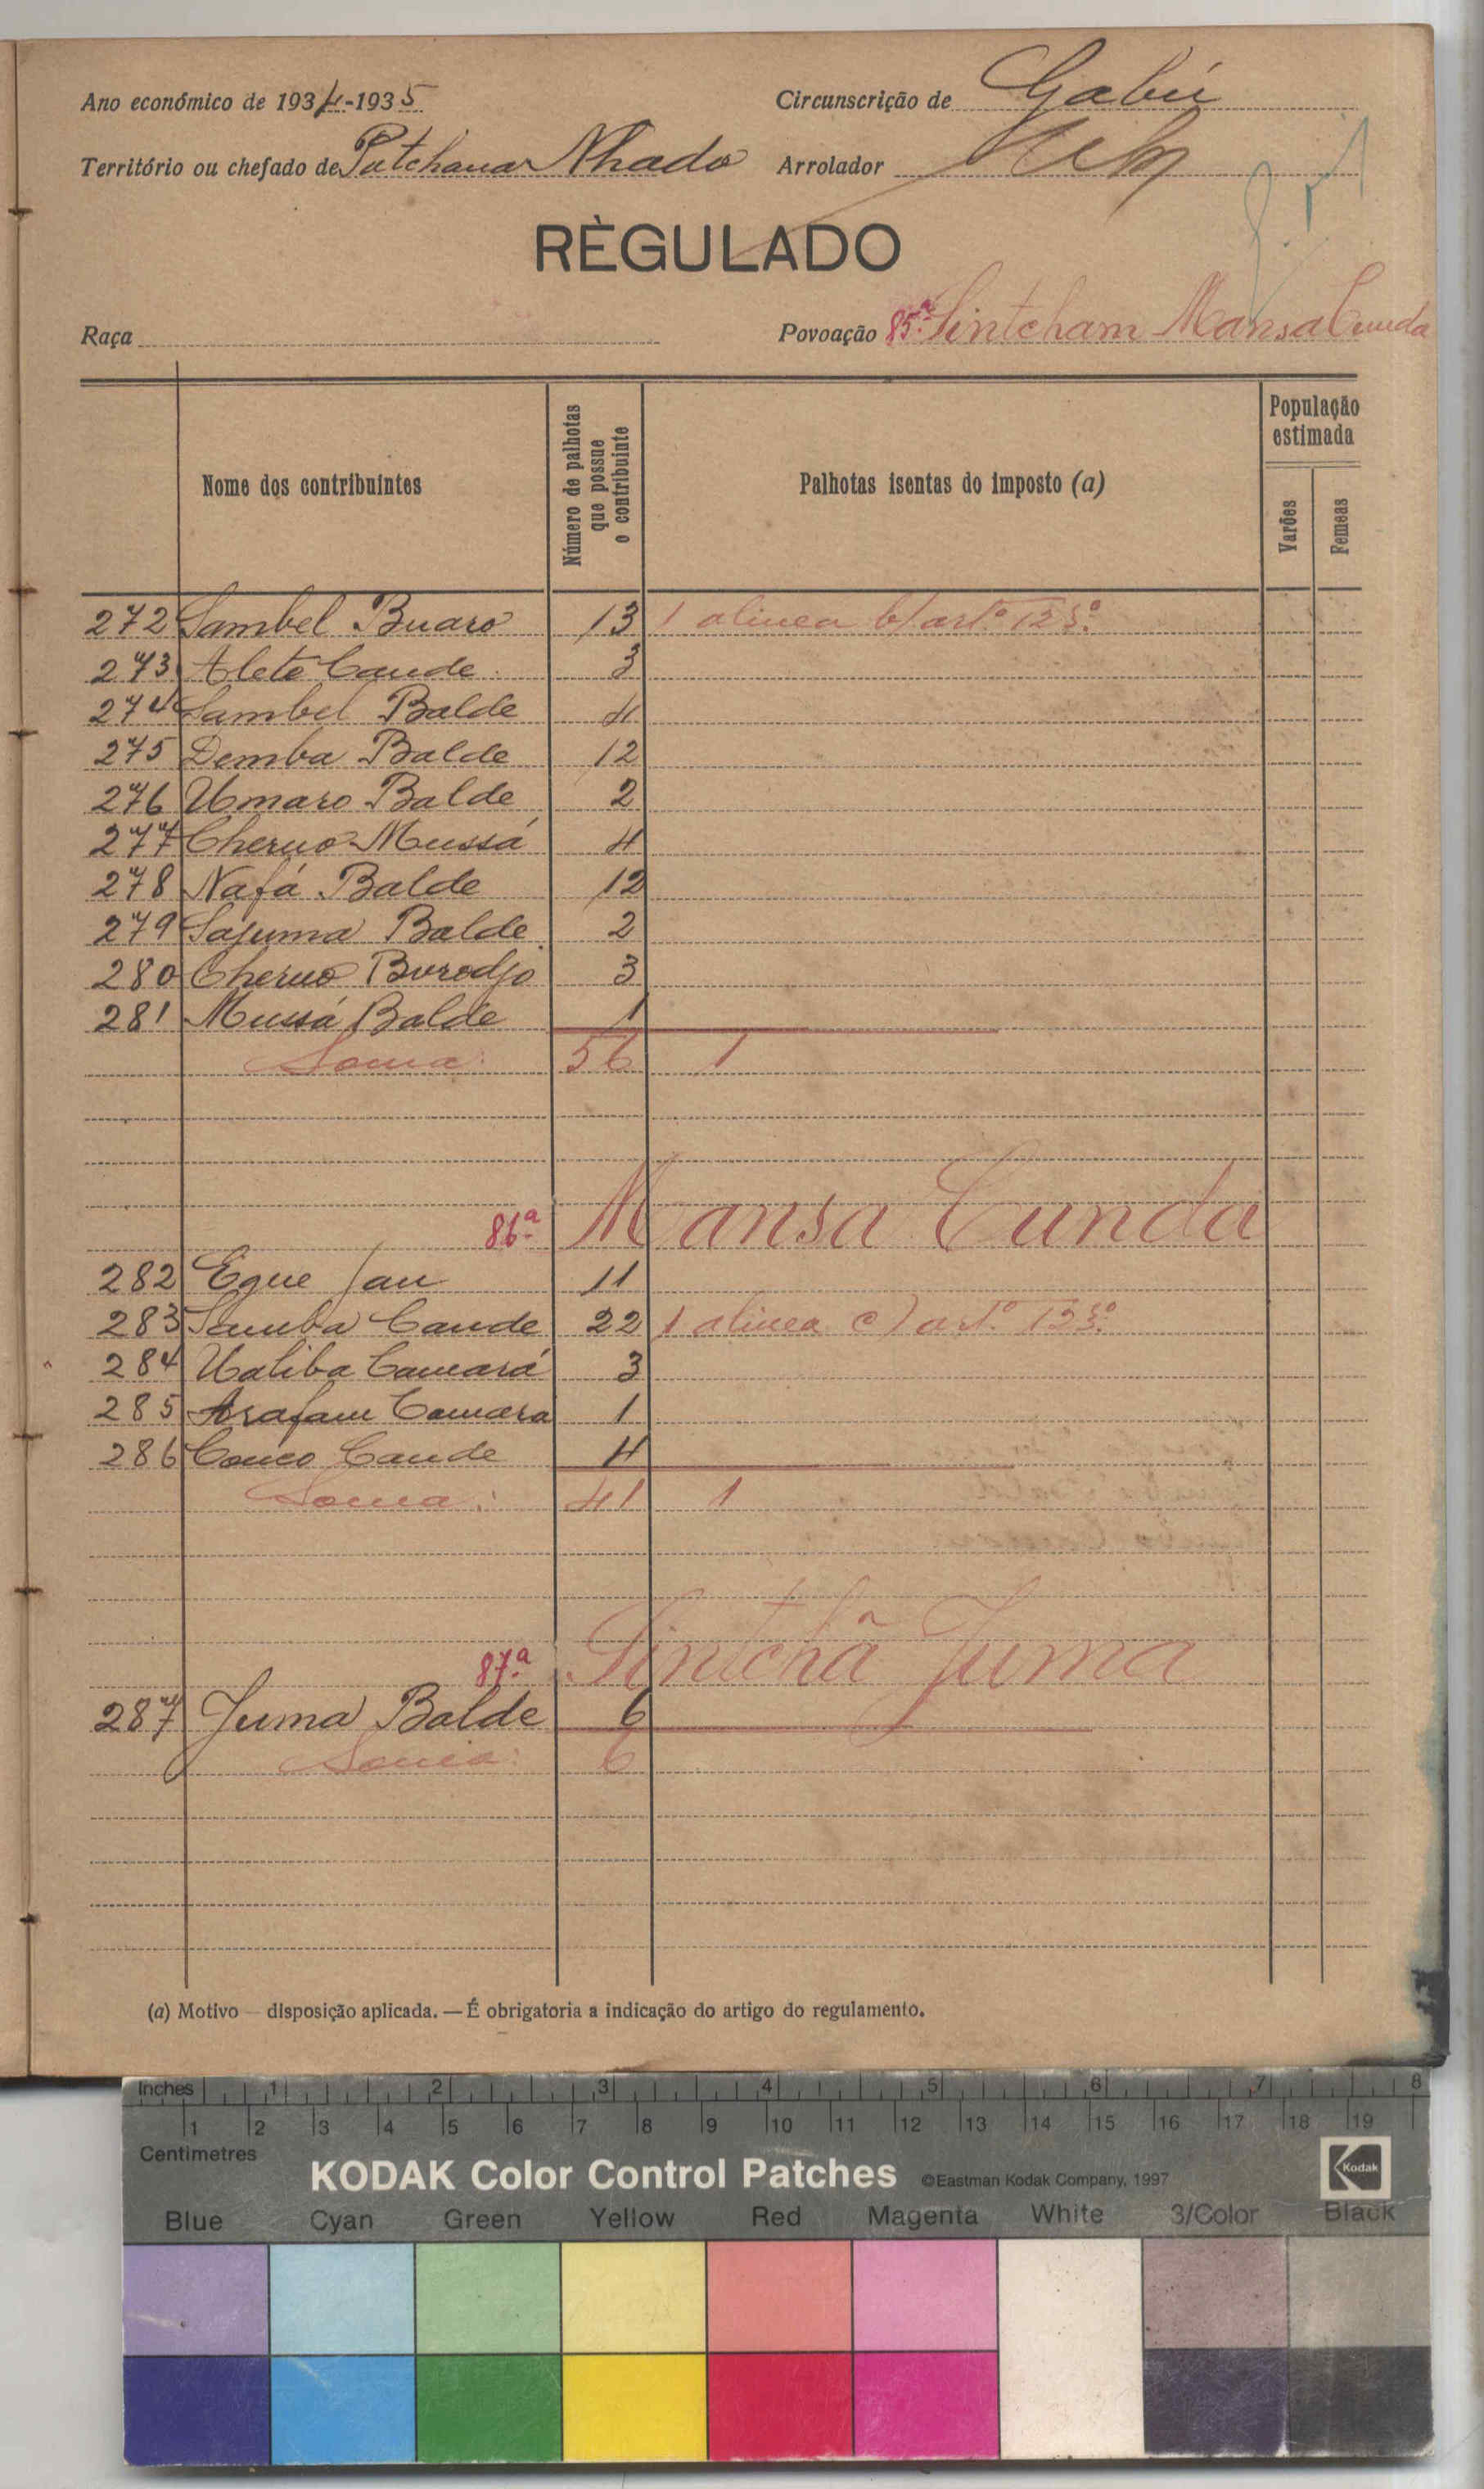 Ano económico de 1934-1935 Circunscrição de Gabú
Território ou chefado de Patchana Nhado Arrolador
RÈGULADO
Raça Povoação 85.ª Sintcham Mansa Cunda
Nome dos contribuintes
Número de palhotas que possue o contribuinte
Palhotas isentas do imposto (a)
População estimada
Varões
Femeas
272 Sambel Buaro 13 1 alinea b) art.º 123.º
273 Alete Cande 3
274 Sambel Balde 4
275 Demba Balde 12
276 Umaro Balde 2
277 Cherno Mussá 4
278 Nafá Balde 12
279 Sajuma Balde 2
280 Cherno Burodjo 3
281 Mussá Balde 1
Soma: 56 1
86.ª Mansa Cunda
282 Egue Jau 11
283 Samba Cande 22 1 alinea c) art.º 123.º
284 Ualiba Camará 3
285 Arafam Camara 1
286 Couco Cande 4
Soma: 41 1
87.ª Sintchã Juma
287 Juma Balde 6
Soma: 6
(a) Motivo — disposição aplicada. — É obrigatoria a indicação do artigo do regulamento.
Inches 1 2 3 4 5 6 7 8
1 2 3 4 5 6 7 8 9 10 11 12 13 14 15 16 17 18 19
Centimetres
KODAK Color Control Patches ©Eastman Kodak Company, 1997 Kodak
Blue Cyan Green Yellow Red Magenta White 3/Color Black